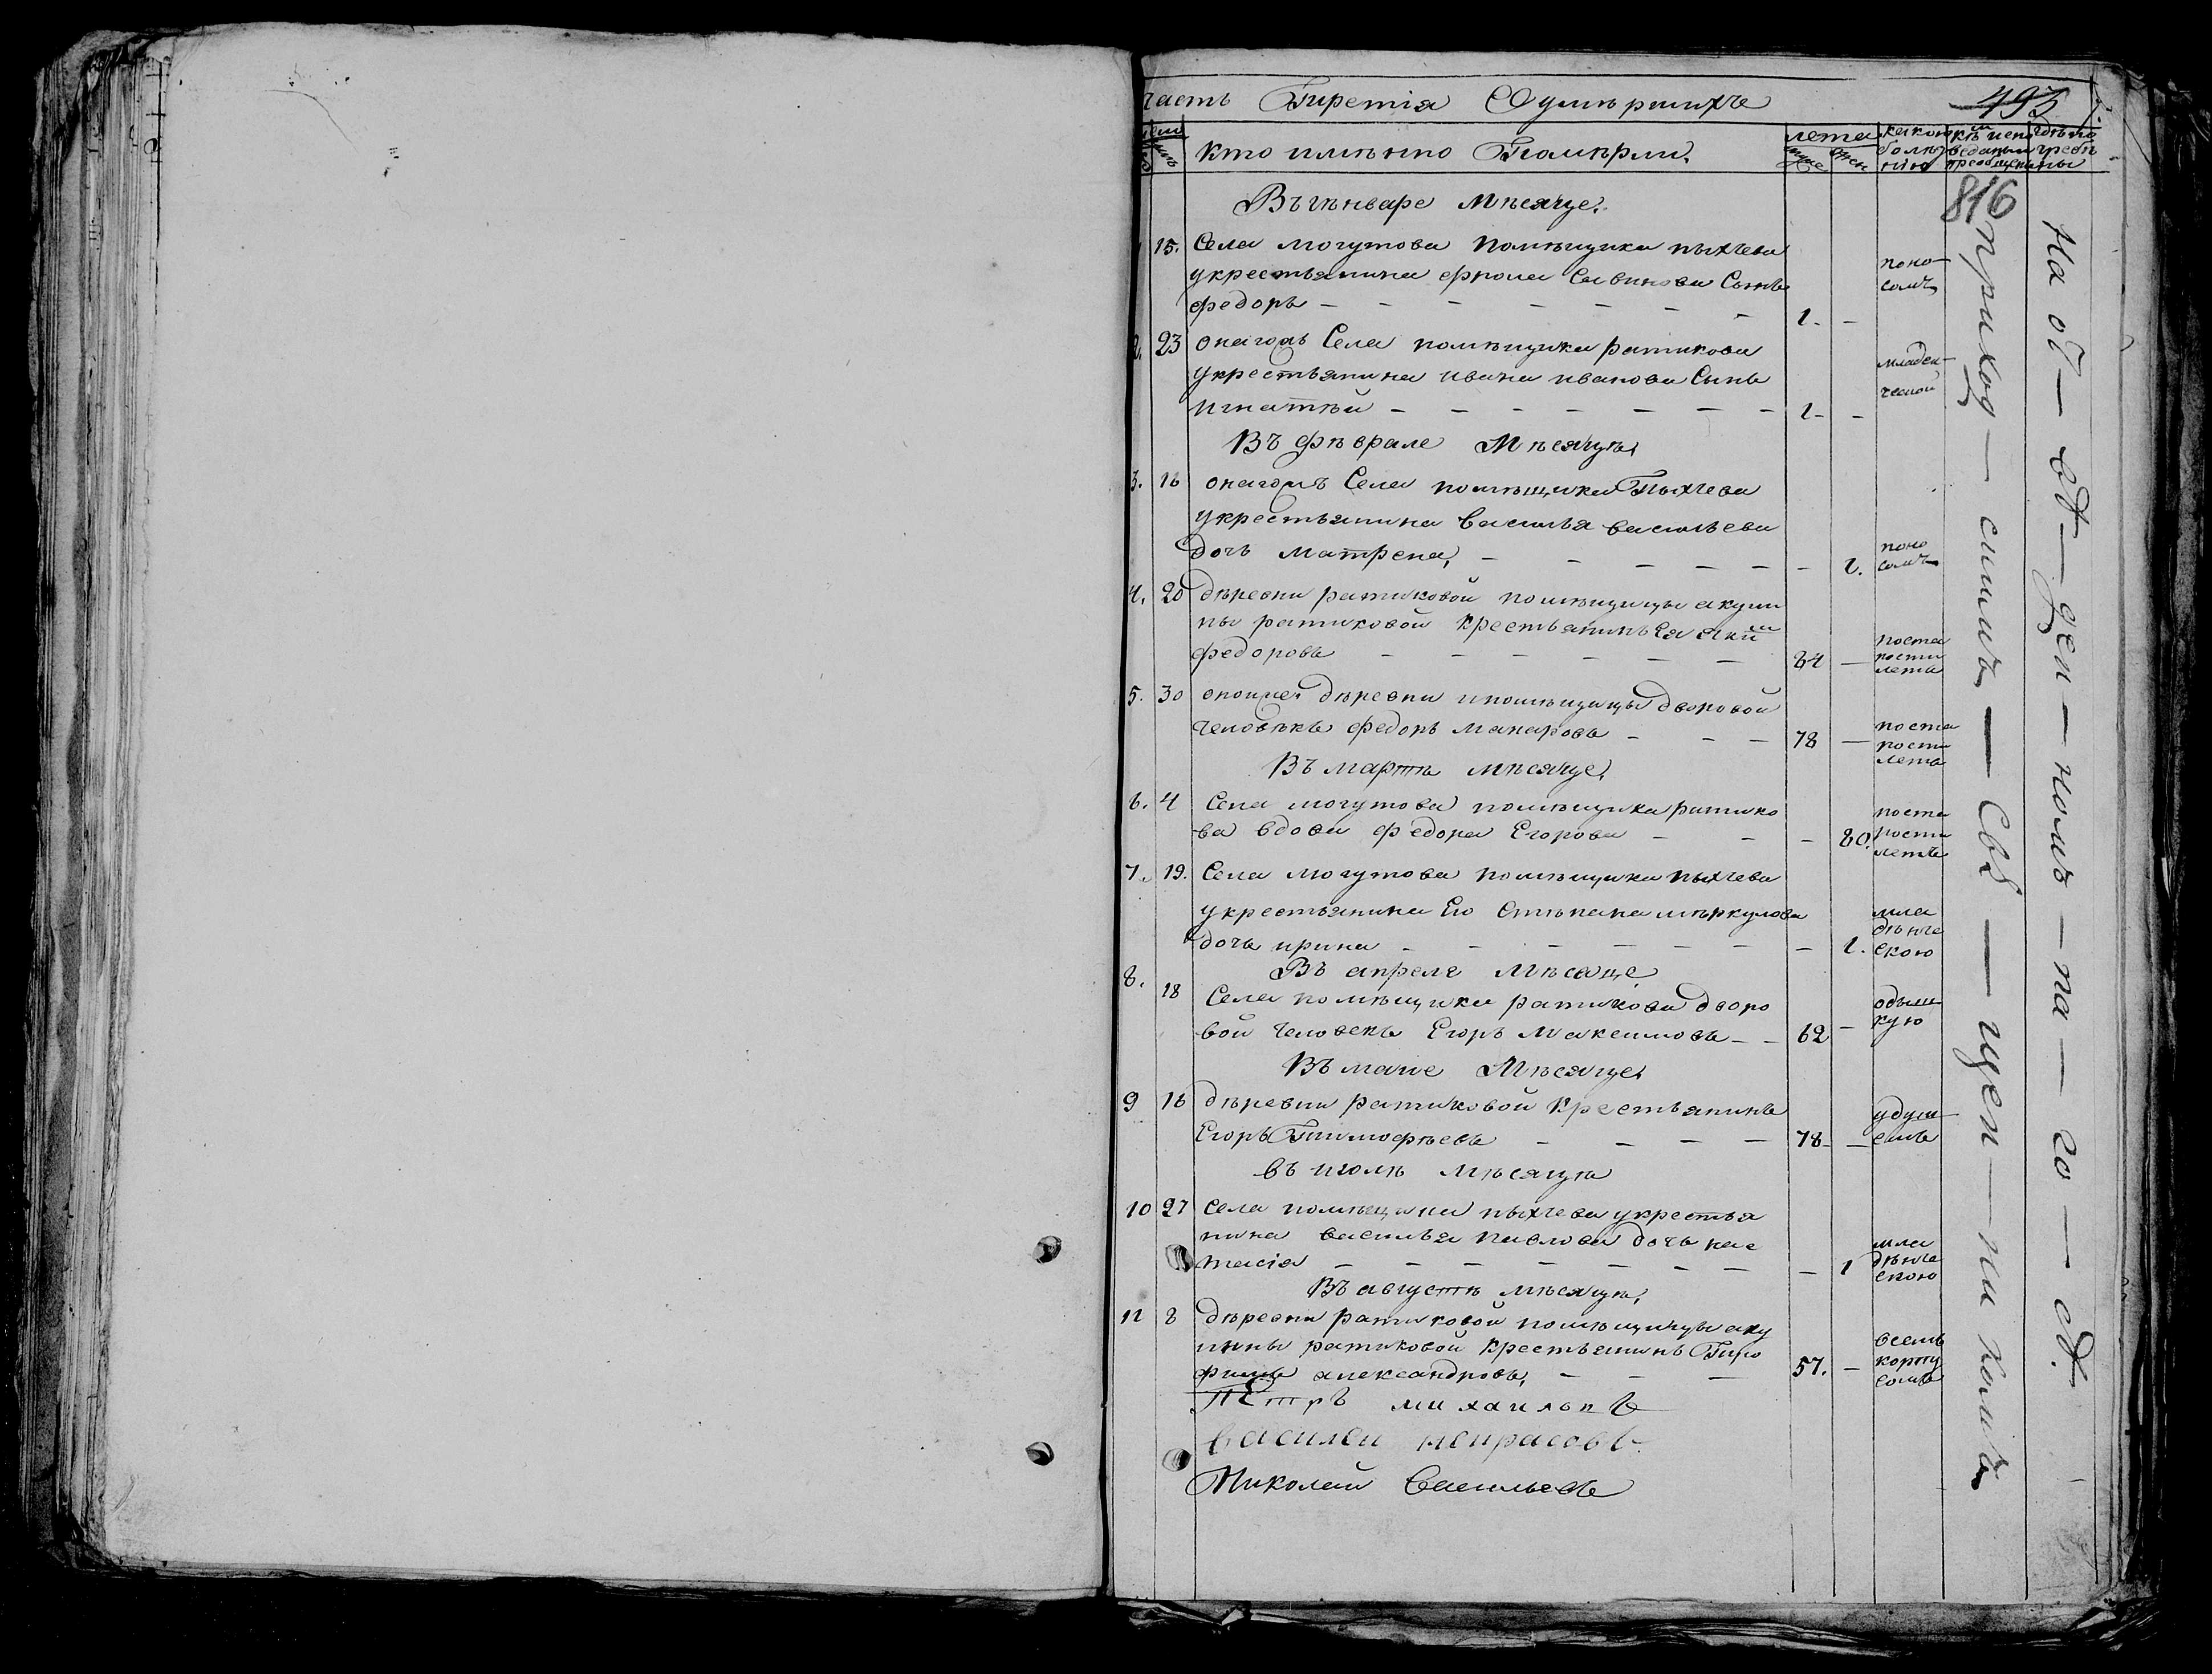 часть Третія Оумѣршихъ
493
кто имѣнно Помѣрли.
лета
816
Въ генваре Мѣсяце.
1 15. Села могутова помѣщика пыхчева
укрестьянина фрола Савинова Сынъ
федоръ — — — — — — — 1. — поносомъ
2. 23 онагожъ Села помѣщика ратикова
укрестьянина ивана иванова Сынъ
игнатѣй — — — — — — — 1 — — младенческой
Въ фѣврале Мѣсяцѣ,
3. 16 онагожъ Села помѣщика Пыхчева
укрестьянина василья васильева
дочь матрена, — — — — — — — 1. поносомъ
4. 20 дѣревни ратиковой помѣщицы акули
ны ратиковой крестьянинъ Ея
федоровъ — — — — — — 84 —
5. 30 оноиже дѣревни ипомѣщицы дворовой
человѣкъ федоръ макаровъ — — — 78 —
Въ мартѣ мѣсяце,
6. 4 Села могутова помѣщика ратико
ва вдова федора Егорова — — — 80.
7. 19. Села могутова помѣщика пыхчева
укрестьянина Ево Стѣпана мѣркулова
дочь ирина — — — — — — — — 1. младѣнческою
Въ апреле мѣсяце
8. 18 Села помѣщика ратикова дворо
вой человекъ Егоръ Максимовъ — — 62 — одышкую
Въ маие Мѣсяце,
9 16 дѣревни ратиковой крестьянинъ
Егоръ Тимофѣевъ — — — — 78 — — удушемъ
въ июлѣ мѣсяцѣ
10 27 села помѣщика пыхчева укрестья
нина василья павлова дочь нас
тасія — — — — — — — — — 1 младѣнческою
Въ августѣ мѣсяцѣ,
11 8 дѣревни ратиковой помѣщицы аку
лины ратиковой крестьянинъ Тро
фимъ александровъ, — — — 57. — всемъ корпусомъ
приход — скимъ — Свя — щен — ни комъ
На об — ще — ден — номъ — па — го — ст.
Пѣтръ михаиловъ
василеи некрасовъ
Николай Васильевъ